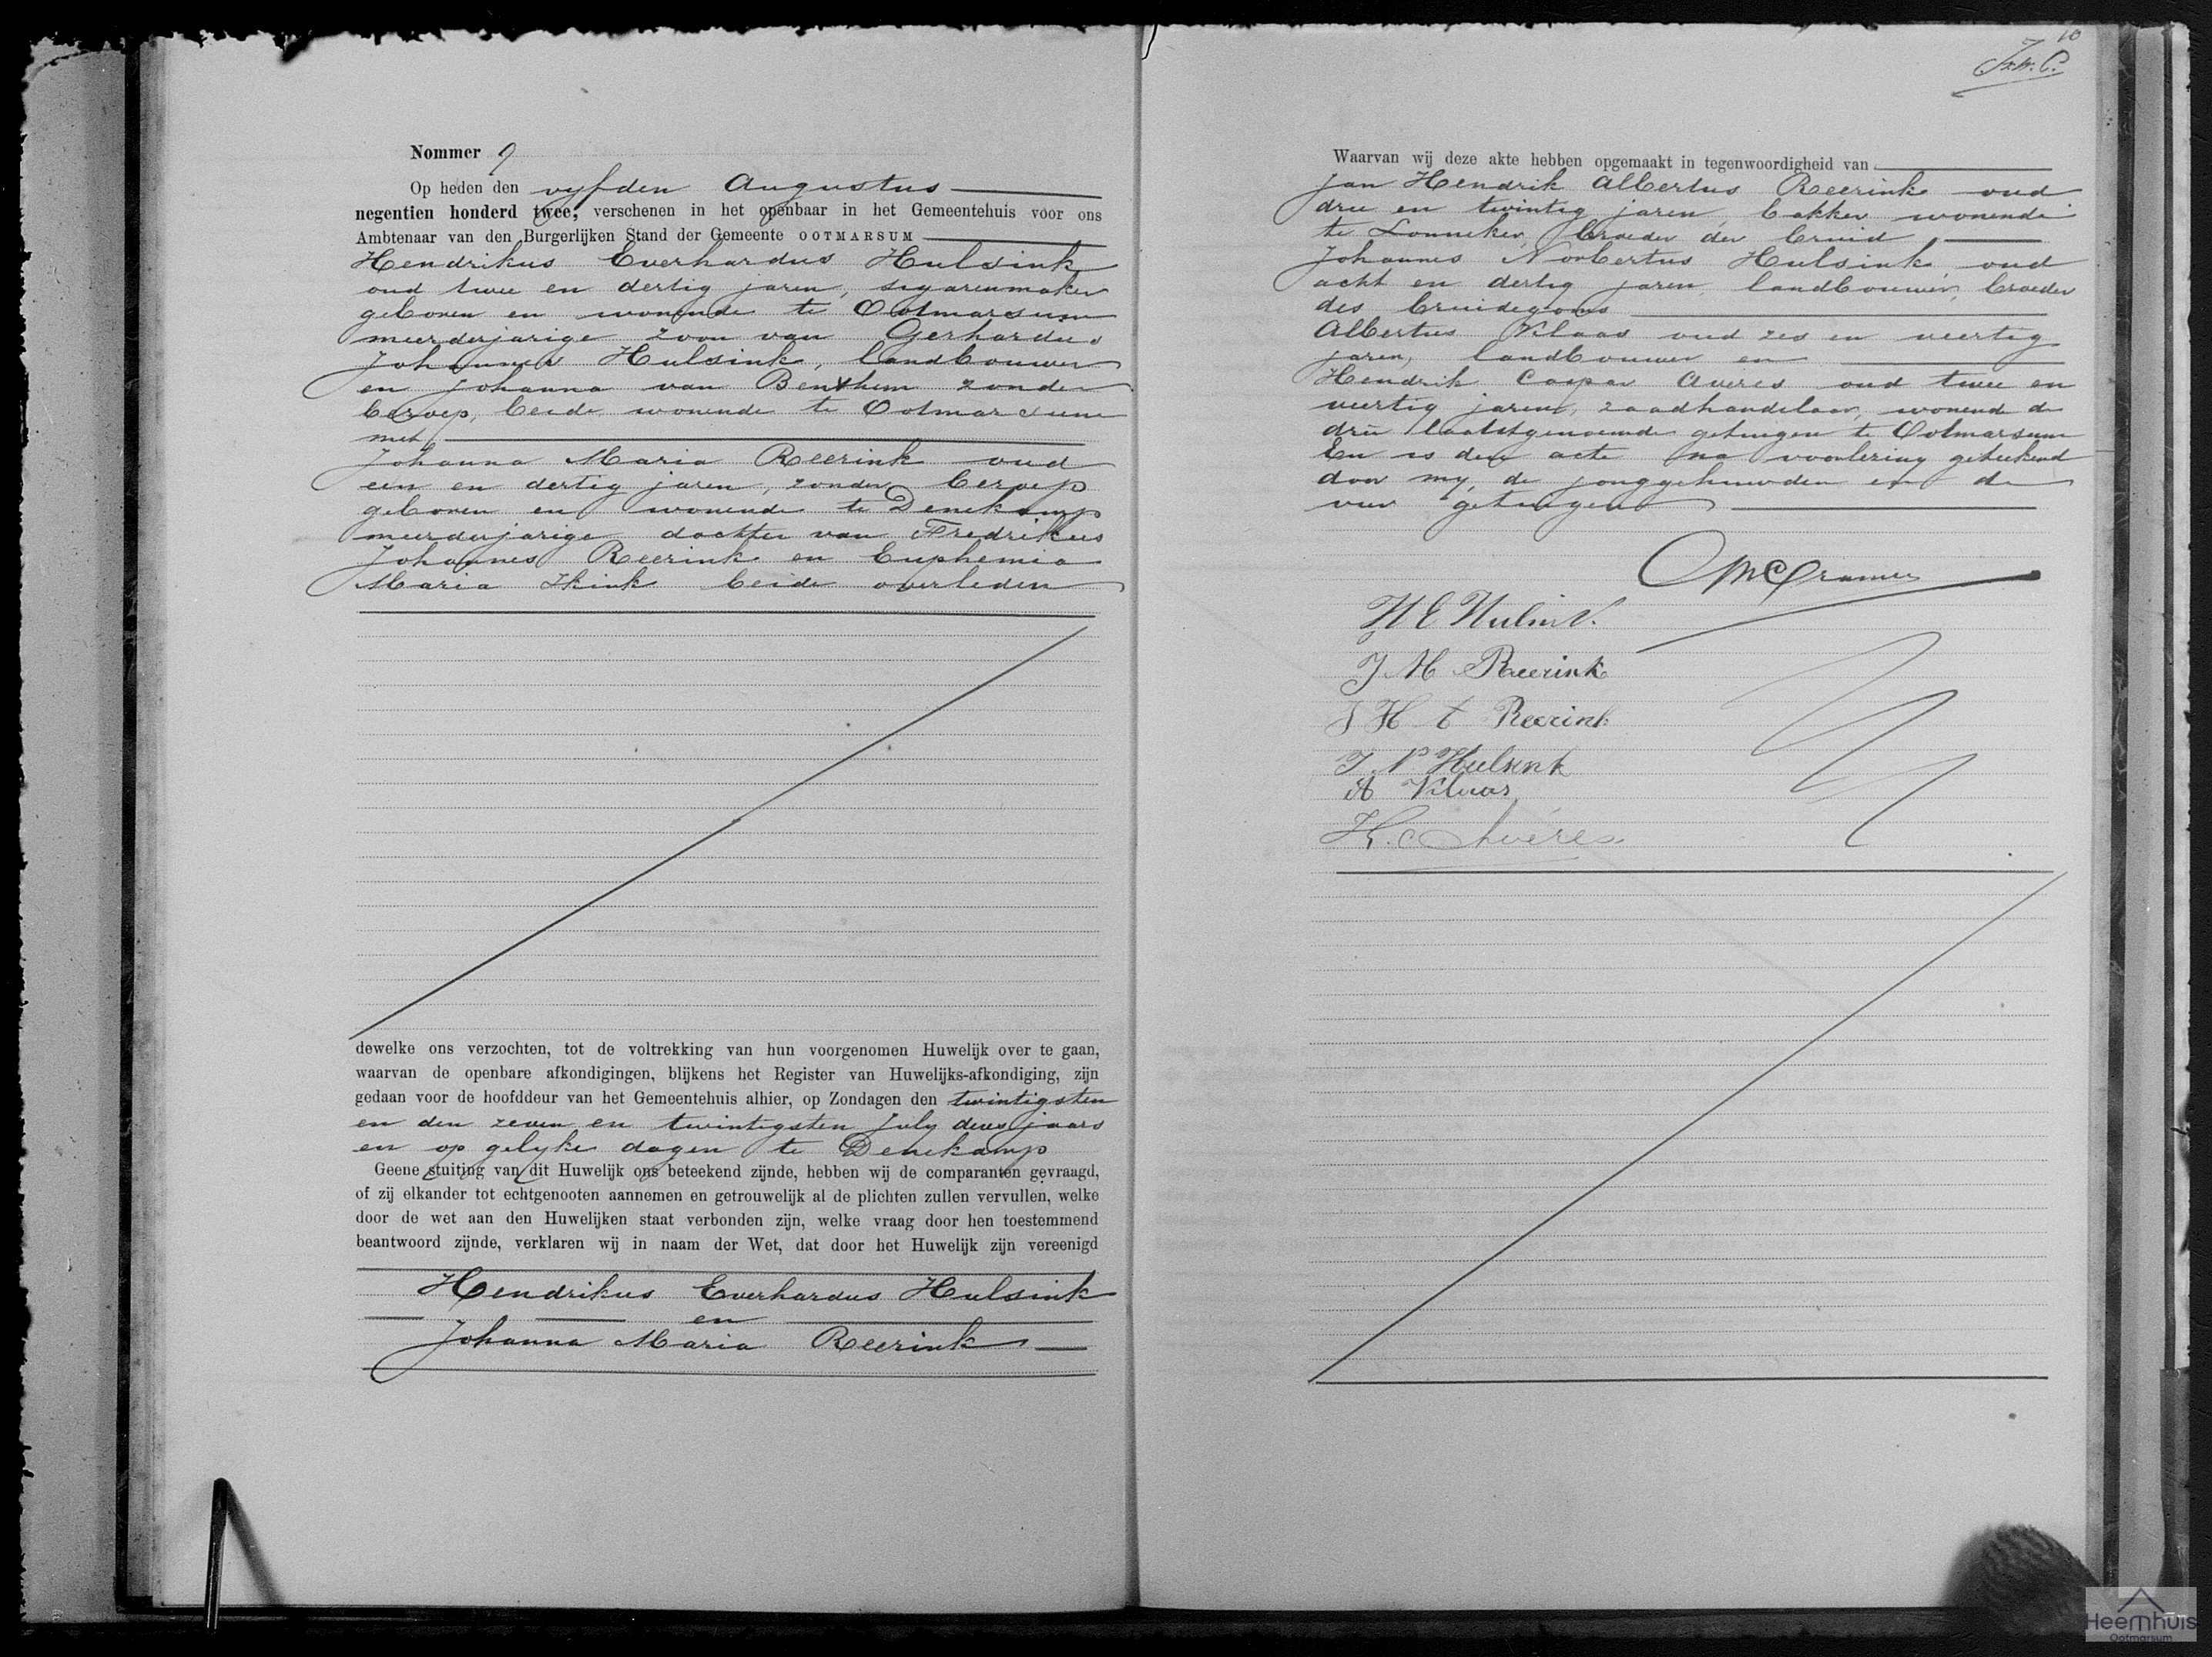 Nommer 9
Op heden den vyfden Augustus
negentien honderd twee, verschenen in het openbaar in het Gemeentehuis voor ons
Ambtenaar van den Burgerlijken Stand der Gemeente OOTMARSUM
Hendrikus Everhardus Hulsink
oud twee en dertig jaren, sigarenmaker
geboren en wonende te Ootmarsum
meerderjarige zoon van Gerhardus
Johannes Hulsink, landbouwer
en Johanna van Benthem zonder
beroep, beide wonende te Ootmarsum
met
Johanna Maria Reerink oud
een en dertig jaren, zonder beroep
geboren en wonende te Denekamp
meerderjarige dochter van Fredrikus
Johannes Reerink en Euphemia
Maria Ikink beide overleden
dewelke ons verzochten, tot de voltrekking van hun voorgenomen Huwelijk over te gaan,
waarvan de openbare afkondigingen, blijkens het Register van Huwelijks-afkondiging, zijn
gedaan voor de hoofddeur van het Gemeentehuis alhier, op Zondagen den twintigsten
en den zeven en twintigsten July dezes jaars
en op gelyke dagen te Denekamp
Geene stuiting van dit Huwelijk ons beteekend zijnde, hebben wij de comparanten gevraagd,
of zij elkander tot echtgenooten aannemen en getrouwelijk al de plichten zullen vervullen, welke
door de wet aan den Huwelijken staat verbonden zijn, welke vraag door hen toestemmend
beantwoord zijnde, verklaren wij in naam der Wet, dat door het Huwelijk zijn vereenigd
Hendrikus Everhardus Hulsink
en
Johanna Maria Reerink
10
Waarvan wij deze akte hebben opgemaakt in tegenwoordigheid van
Jan Hendrik Albertus Reerink oud
drie en twintig jaren, bakker wonende
te Lonneker, broeder der bruid
Johannes Norbertus Hulsink, oud
acht en dertig jaren, landbouwer, broeder
des bruidegoms
Albertus Vilaas oud zes en veertig
jaren, landbouwer en
Hendrik Caspar Averes oud twee en
veertig jaren, zaadhandelaar, wonende de
drie laatstgenoemde getuigen te Ootmarsum
En is deze acte na voorlezing geteekend
door my, de jonggehuwden en de
vier getuigen
Cramer
H E Hulsink
J M Reerink
J H A Reerink
J N Hulsink
A Vilaas
H. C Averes
Heemhuis
Ootmarsum